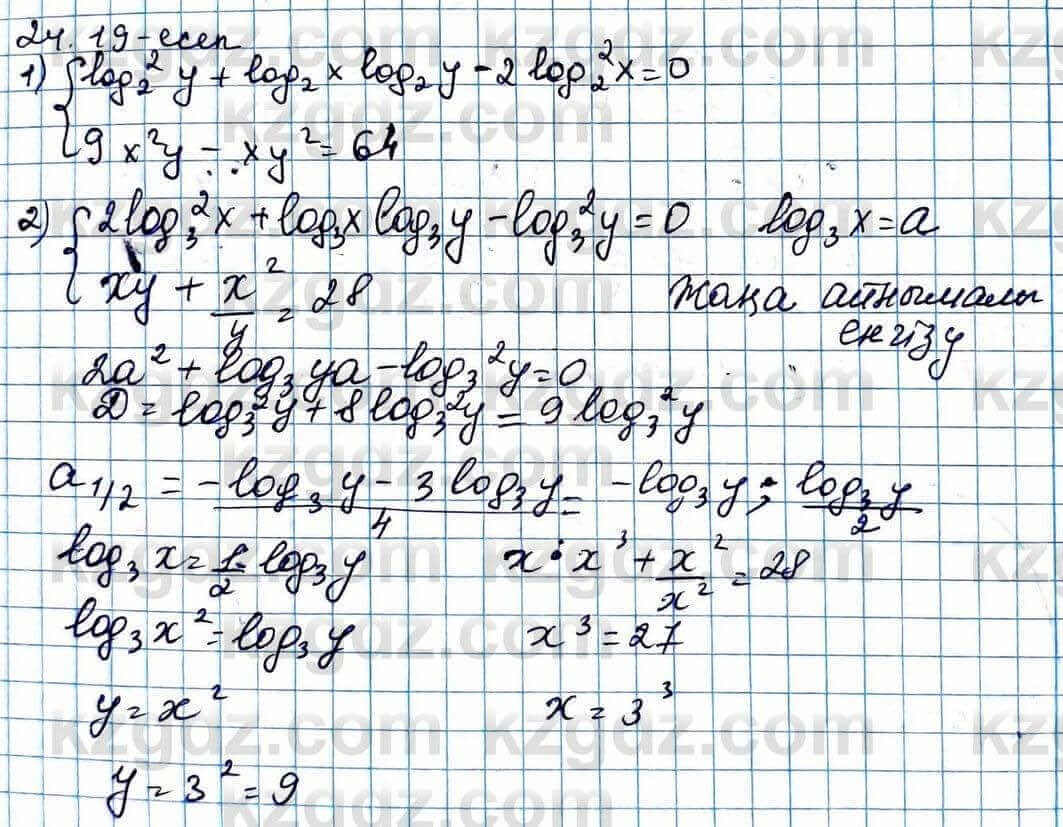 24.19-есеп
1) { log₂² y + log₂ x log₂ y - 2 log₂² x = 0
9x²y - xy² = 64
2) { 2log₃² x + log₃ x log₃ y - log₃² y = 0 log₃ x = a
xy + x²/y = 28 Жаңа айнымалы
енгізу
2a² + log₃ ya - log₃² y = 0
D = log₃² y + 8 log₃² y = 9 log₃² y
a₁/₂ = (-log₃ y - 3 log₃ y)/4 = -log₃ y; log₃ y/2
log₃ x = 1/2 · log₃ y x · x³ + x²/x² = 28
log₃ x² = log₃ y x³ = 27
y = x² x = 3³
y = 3² = 9
kzgdz.com